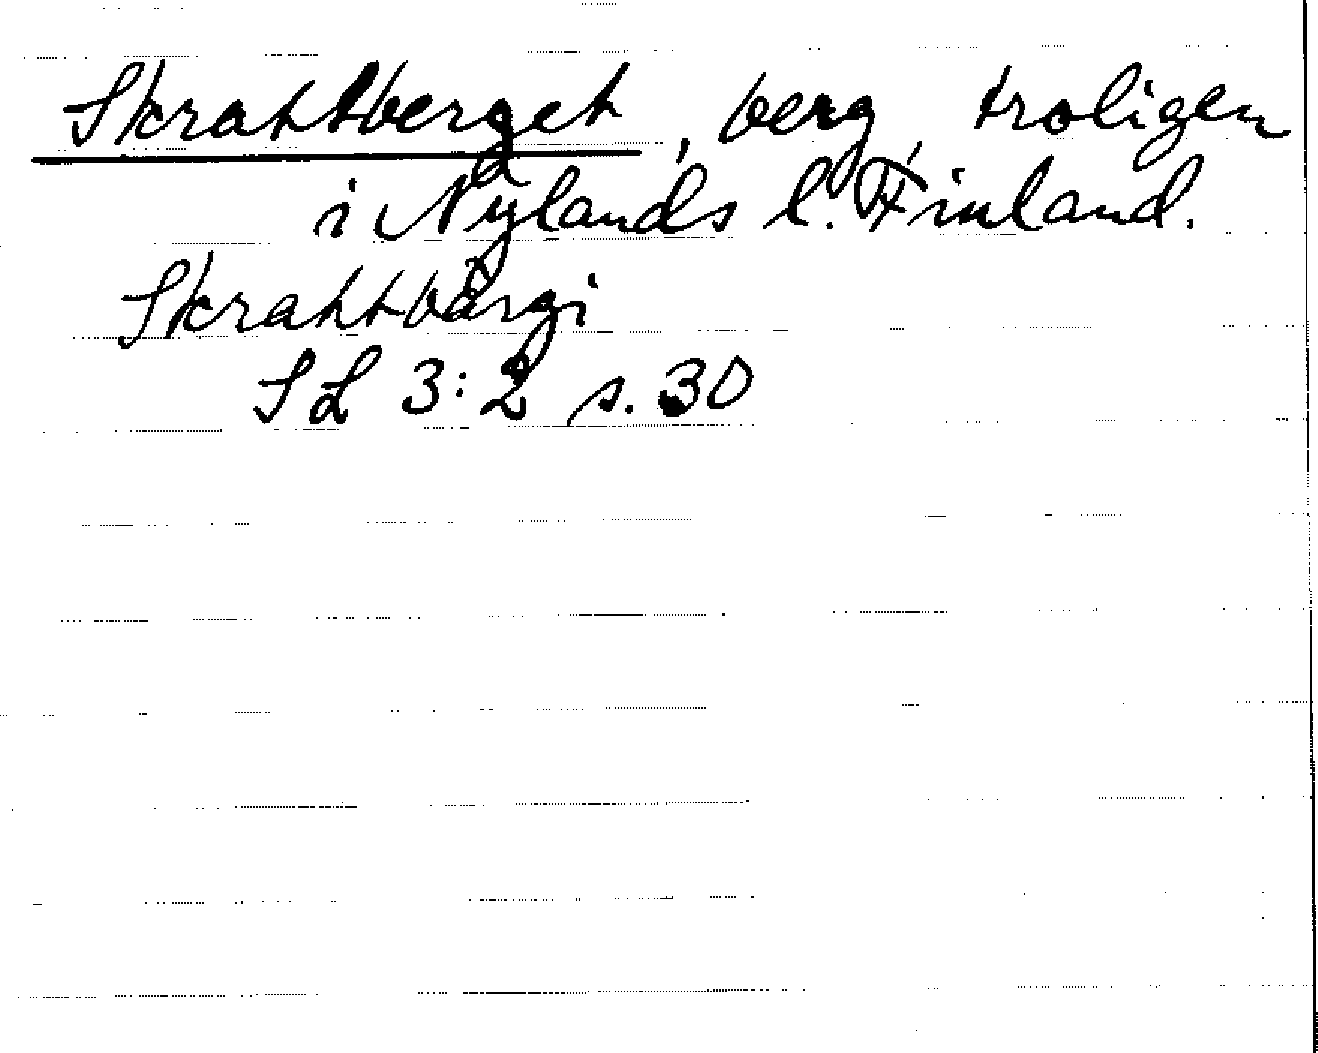 Skrattberget, berg, troligen
i Nylands l. Finland.
Skrattbärgi
SL 3:2 s. 30